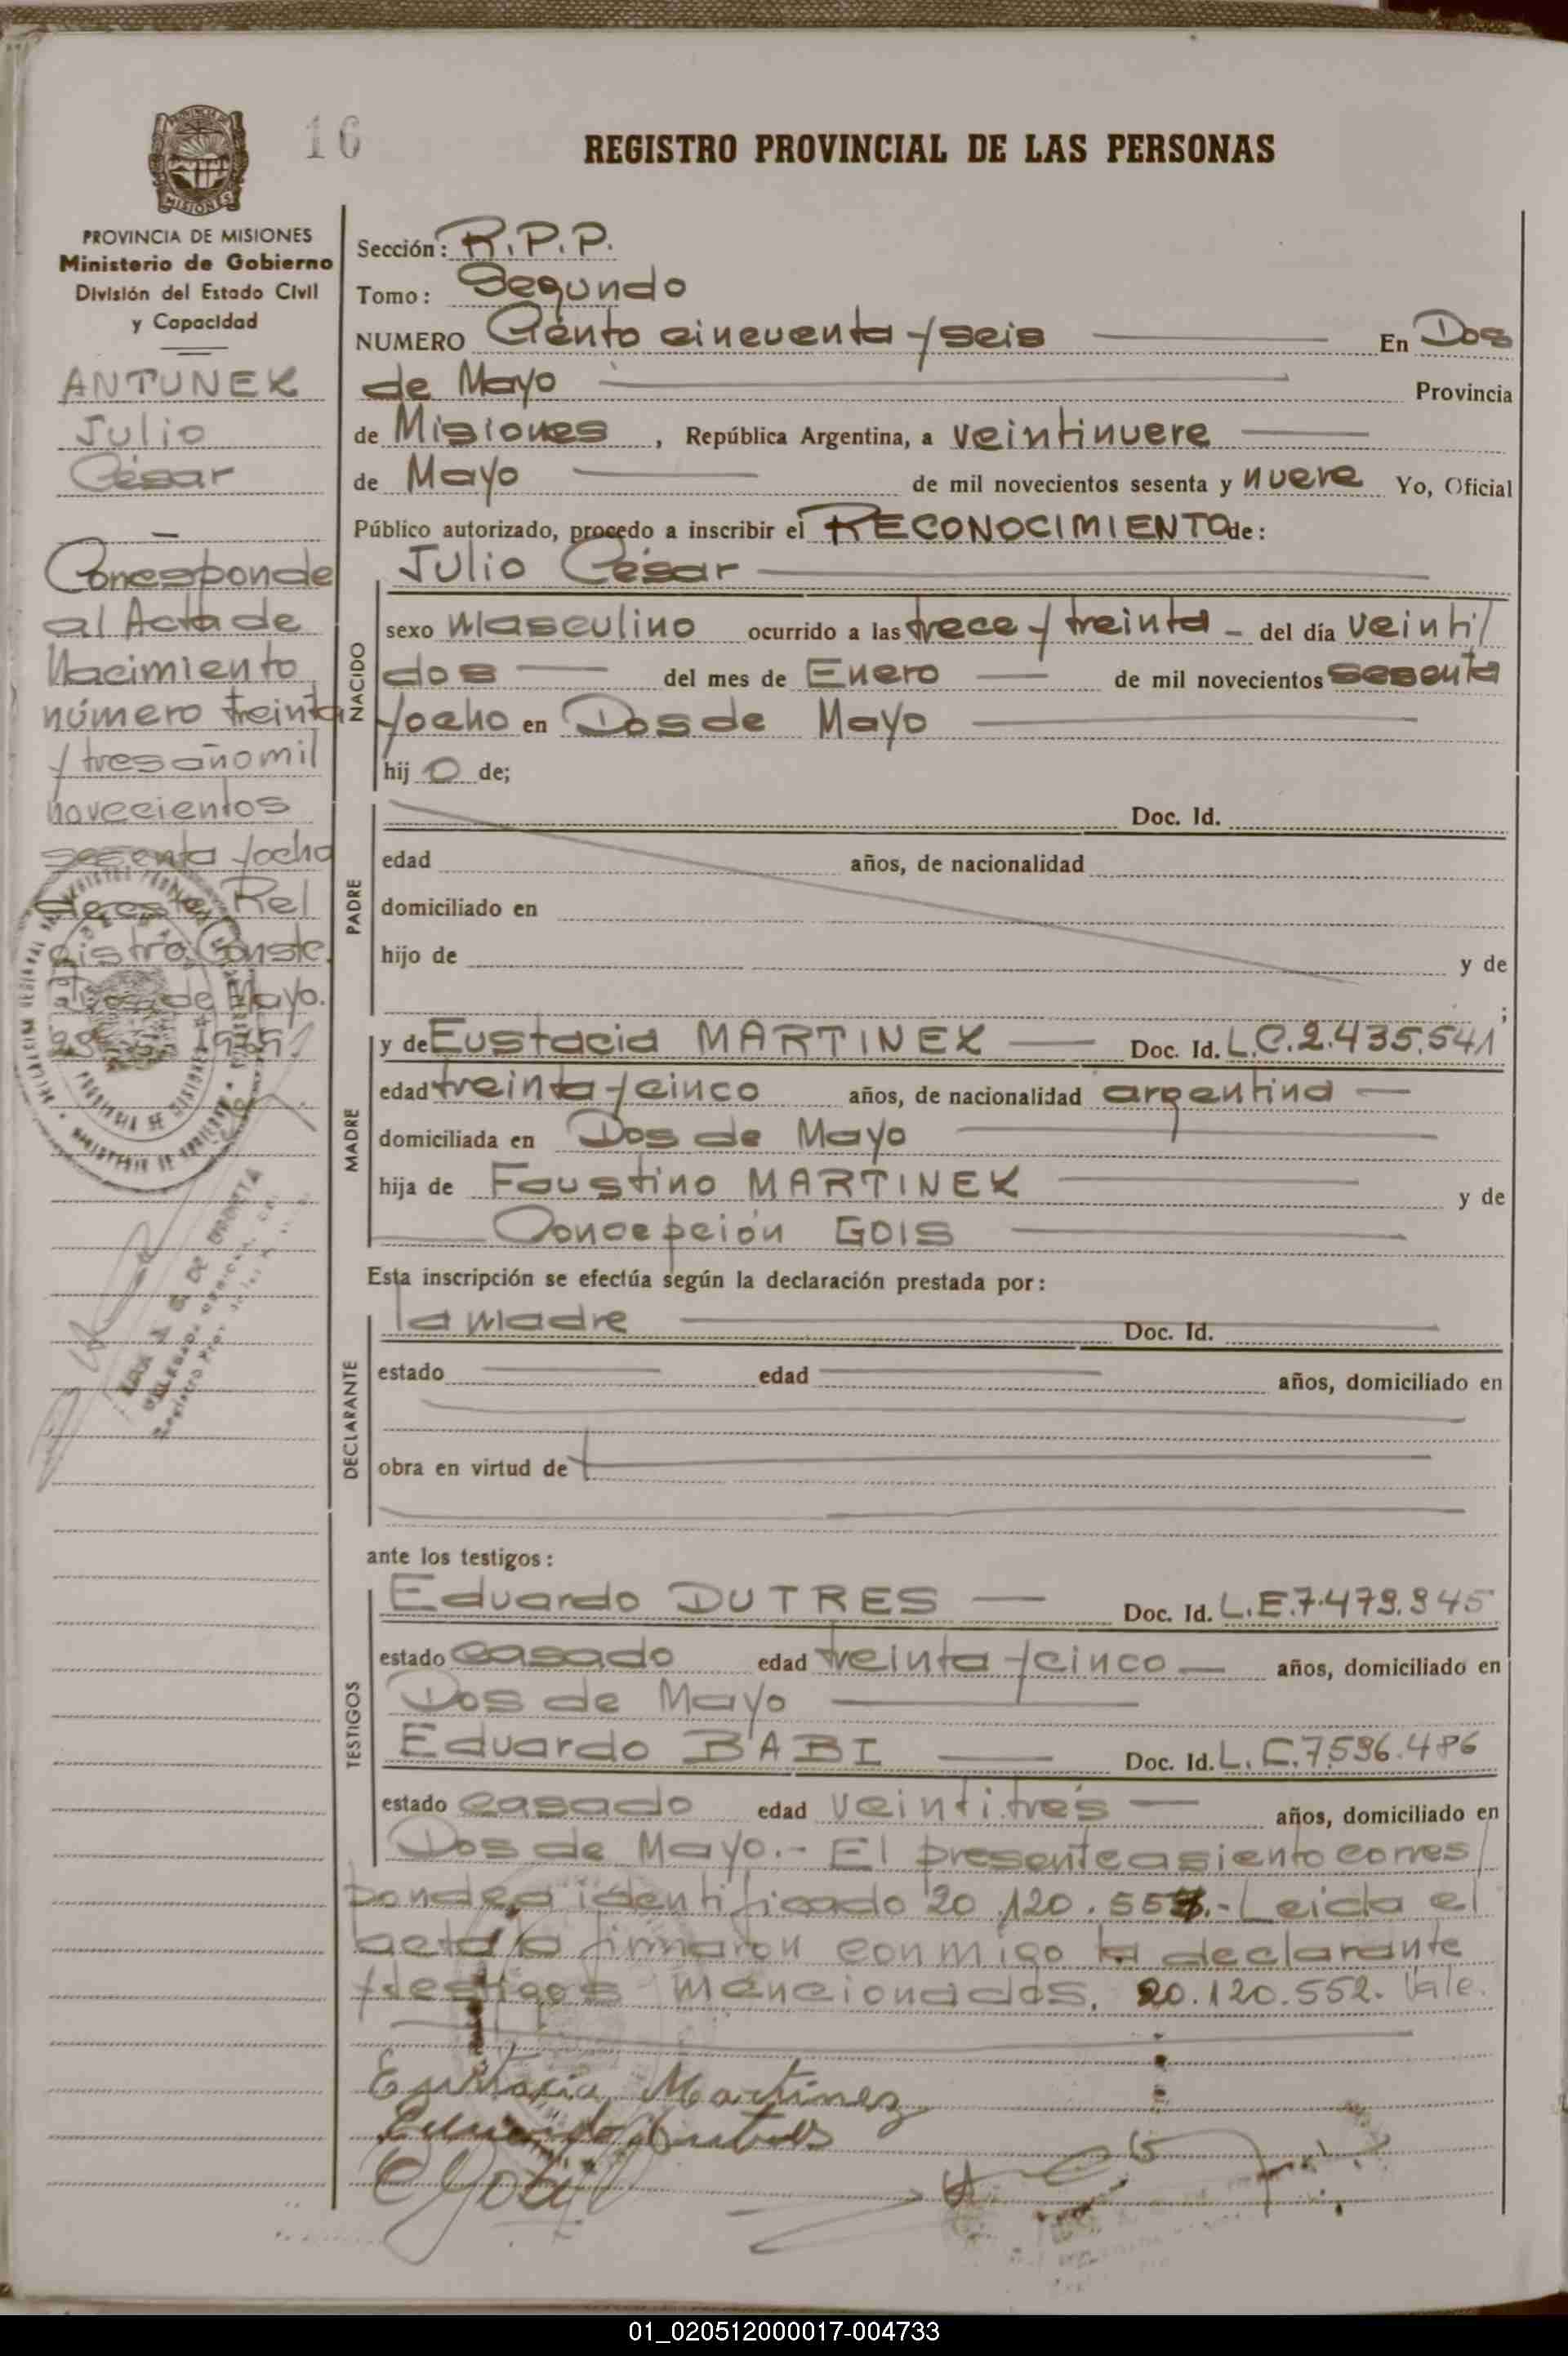 16
REGISTRO PROVINCIAL DE LAS PERSONAS
PROVINCIA DE MISIONES
Ministerio de Gobierno
División del Estado Civil
y Capacidad
ANTUNEZ
Julio
César
Corresponde
al Acta de
Nacimiento
número treinta
y tres año mil
novecientos
sesenta y ocho
de este Re/
gistro. Conste.
Dos de Mayo.
Sección: R.P.P.
Tomo: Segundo
NUMERO Ciento cincuenta y seis En Dos
de Mayo Provincia
de Misiones, República Argentina, a veintinueve
de Mayo de mil novecientos sesenta y nueve Yo, Oficial
Público autorizado, procedo a inscribir el RECONOCIMIENTO de:
NACIDO
Julio César
sexo masculino ocurrido a las trece y treinta - del día veinti/
dos del mes de Enero de mil novecientos sesenta
y ocho en Dos de Mayo
hij o de;
PADRE
Doc. Id.
edad años, de nacionalidad
domiciliado en
hijo de y de
;
MADRE
y de Eustacia MARTINEZ Doc. Id. L.C.2.435.541
edad treinta y cinco años, de nacionalidad argentina
domiciliada en Dos de Mayo
hija de Faustino MARTINEZ y de
Concepción GOIS
Esta inscripción se efectúa según la declaración prestada por:
DECLARANTE
la madre Doc. Id.
estado edad años, domiciliado en
obra en virtud de
ante los testigos:
TESTIGOS
Eduardo DUTRES Doc. Id. L.E.7.479.945
estado casado edad treinta y cinco años, domiciliado en
Dos de Mayo
Eduardo BABI Doc. Id. L.E.7.596.486
estado casado edad veintitrés años, domiciliado en
Dos de Mayo.- El presente asiento corres/
ponde a identificado 20.120.55 .- Leida el
acta la firmaron conmigo la declarante
y testigos mencionados. 20.120.552. Vale.
Eustacia Martinez
01_020512000017-004733